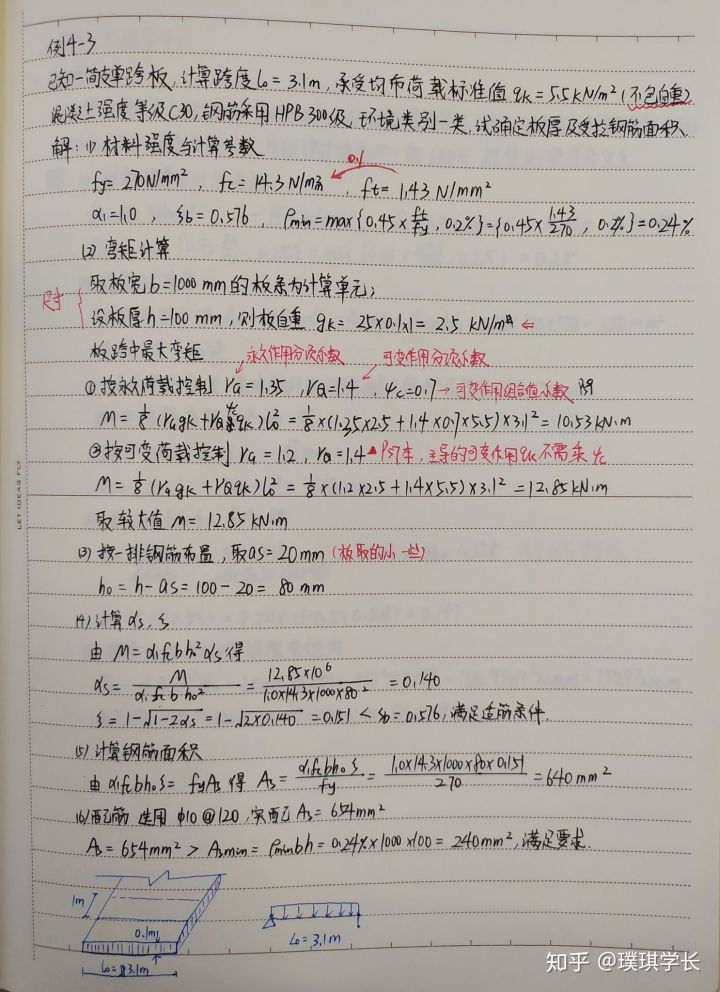 例4-3
已知一简支单跨板,计算跨度l₀=3.1m,承受均布荷载标准值qk=5.5kN/m²(不包自重)
混凝土强度等级C30,钢筋采用HPB300级,环境类别一类,试确定板厚及受拉钢筋面积.
解:(1)材料强度与计算参数
0.1
fy=270N/mm², fc=14.3N/mm², ft=1.43N/mm²
α₁=1.0, ξb=0.576, ρmin=max{0.45×ft/fy, 0.2%}={0.45×1.43/270, 0.2%}=0.24%
(2)弯矩计算
尺寸
取板宽b=1000mm的板条为计算单元;
设板厚h=100mm,则板自重 gk=25×0.1×1=2.5 kN/m ⇐
板跨中最大弯矩 永久作用分项系数 可变作用分项系数
①按永久荷载控制 γG=1.35, γQ=1.4, ψc=0.7→可变作用组合值系数
M=1/8(γGgk+γQψcqk)l₀²=1/8×(1.35×2.5+1.4×0.7×5.5)×3.1²=10.53kN·m
②按可变荷载控制 γG=1.2, γQ=1.4 P57本,主导的可变作用qk不需乘ψc
M=1/8(γGgk+γQqk)l₀²=1/8×(1.2×2.5+1.4×5.5)×3.1²=12.85kN·m
取较大值M=12.85kN·m
(3)按一排钢筋布置,取as=20mm(板取的小一些)
h₀=h-as=100-20=80mm
(4)计算αs,ξ
由 M=α₁fcbh₀²αs得
αs=M/α₁fcbh₀²=12.85×10⁶/1.0×14.3×1000×80²=0.140
ξ=1-√1-2αs=1-√2×0.140=0.151<ξb=0.576,满足适筋条件.
(5)计算钢筋面积
由α₁fcbh₀ξ=fyAs得 As=α₁fcbh₀ξ/fy=1.0×14.3×1000×80×0.151/270=640mm²
(6)配筋 选用φ10@120,实配As=654mm²
As=654mm²>Asmin=ρminbh=0.24%×1000×100=240mm²,满足要求.
1m
0.1m
l₀=3.1m
l₀=3.1m
LET IDEAS FLY
知乎 @璞琪学长